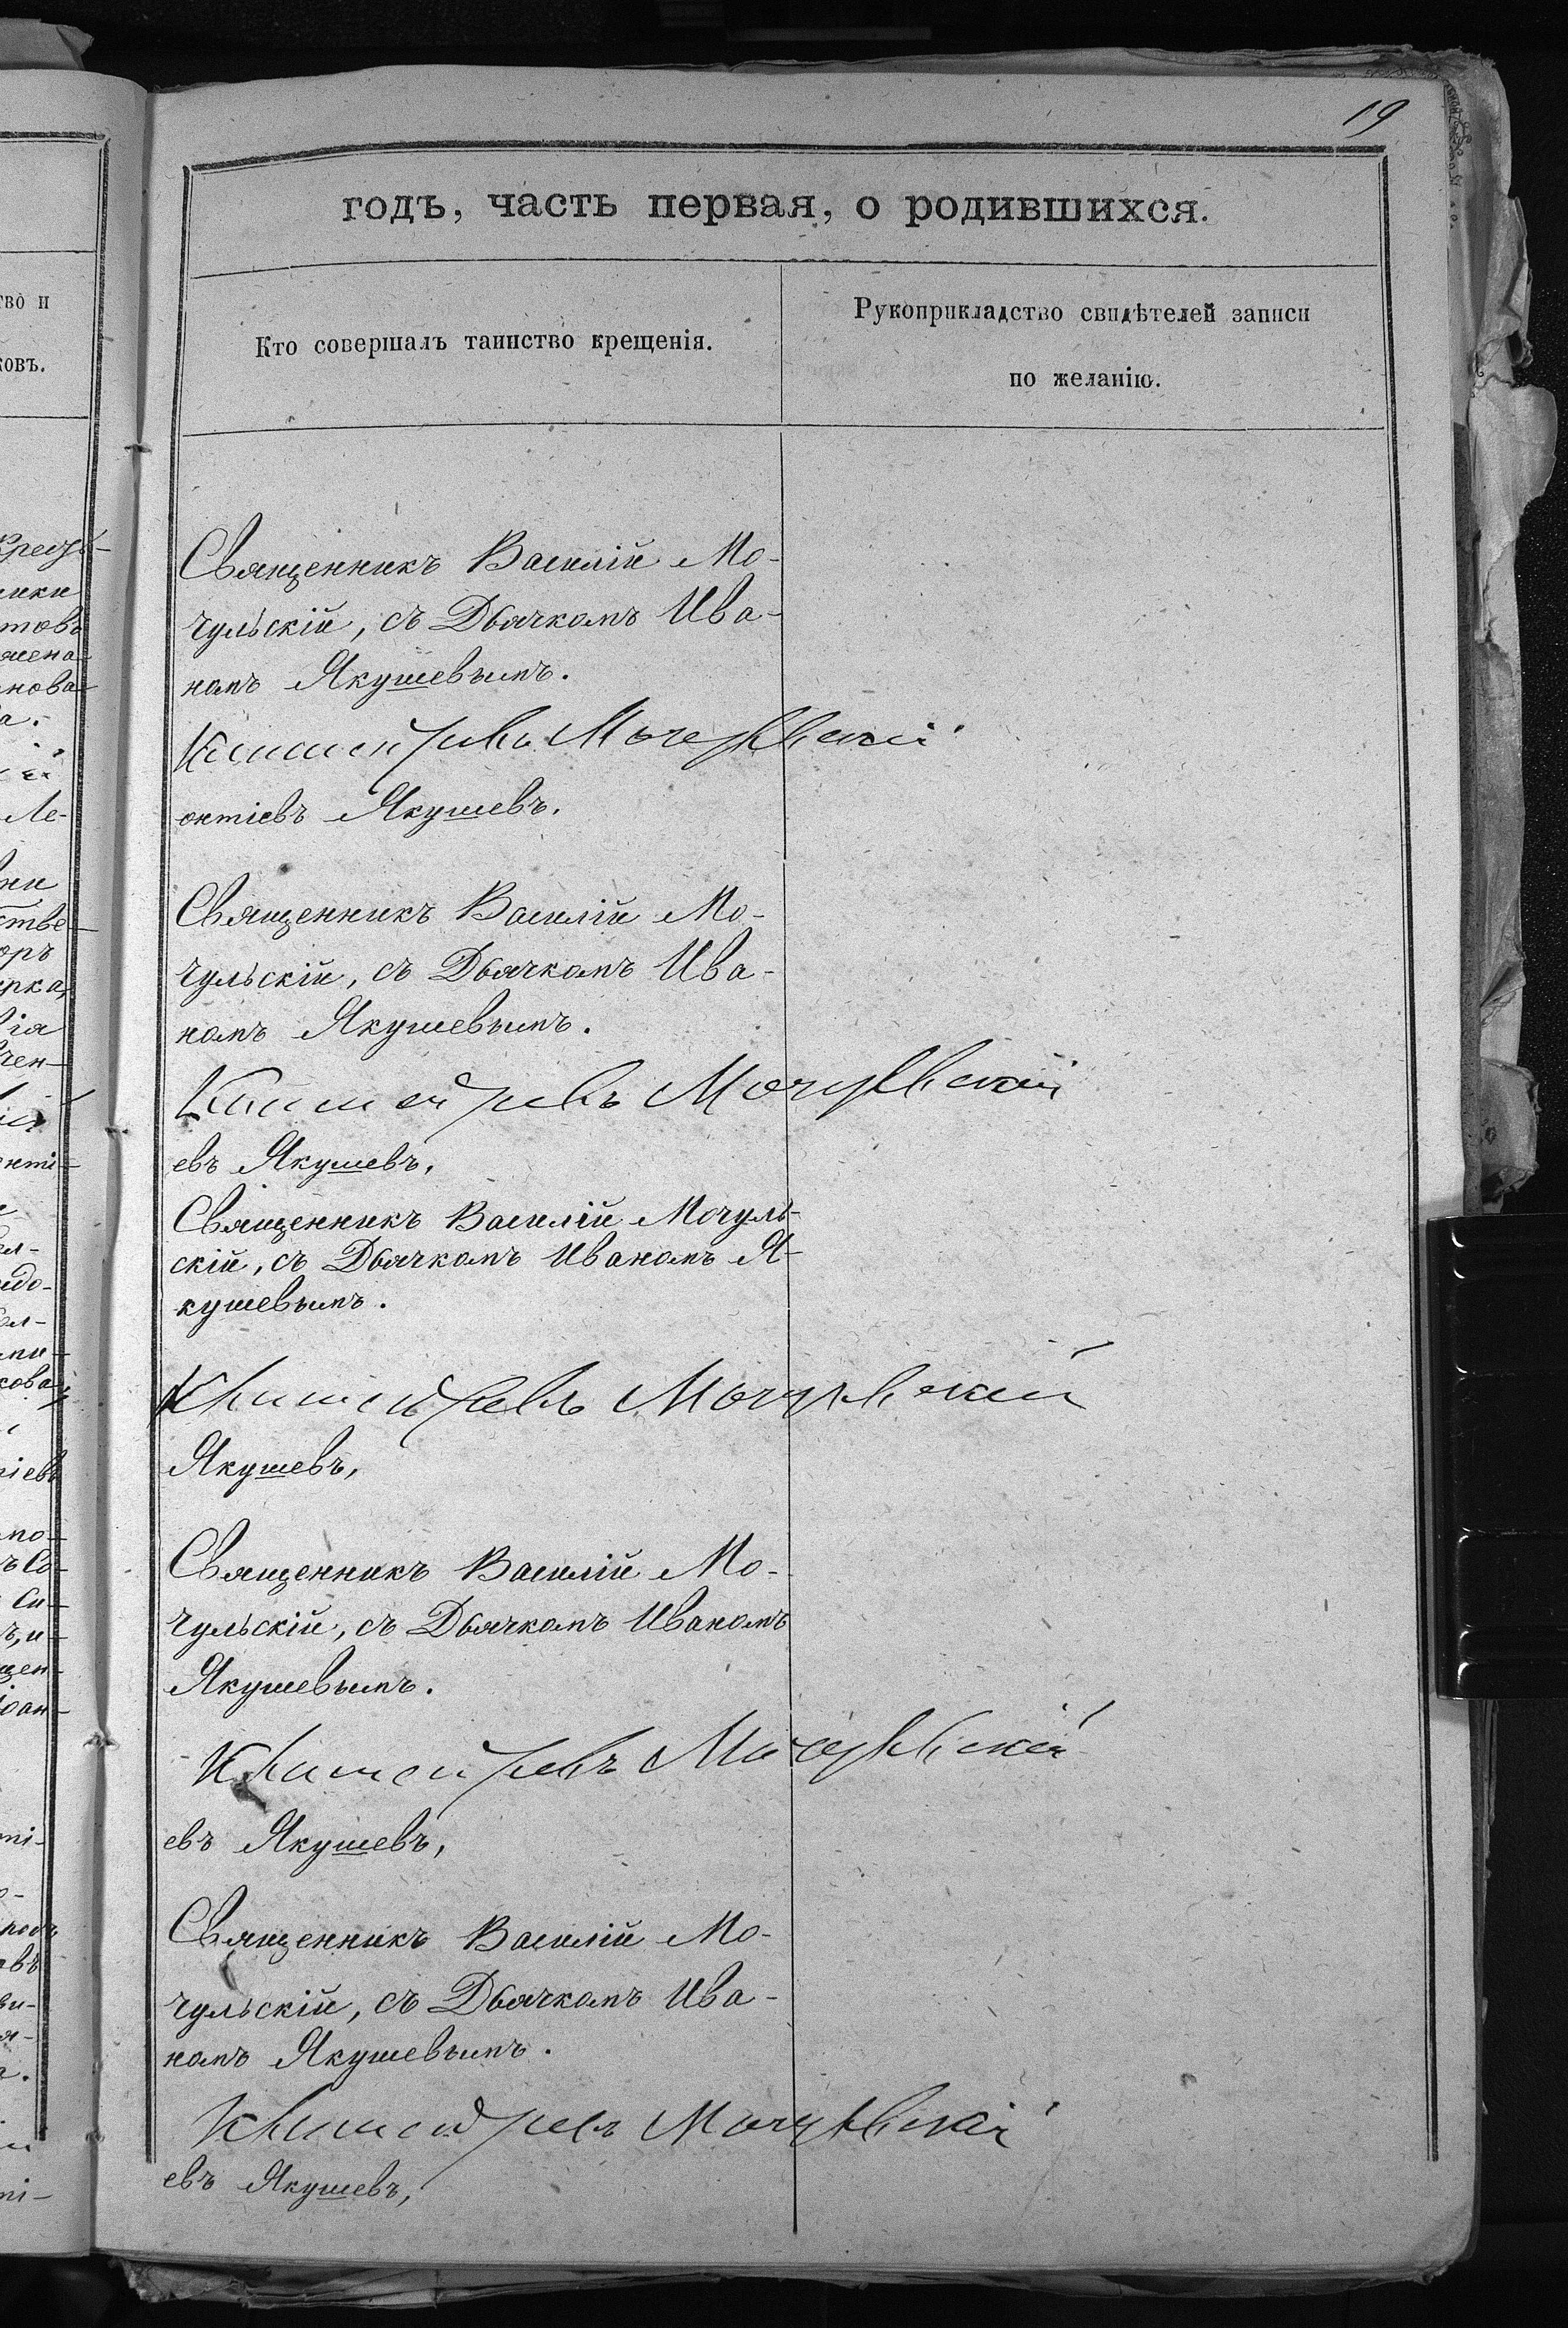 19
годъ, часть первая, о родившихся.
Кто совершалъ таинство крещенія.
Рукоприкладство свидѣтелей записи
по желанію.
Священникъ Василій Мо-
чульскій, съ Дьячкомъ Ива-
номъ Якушевымъ.
Мочульскій
октіевъ Якушевъ.
Священникъ Василій Мо-
чульскій, съ Дьячкомъ Ива-
номъ Якушевымъ.
Мочульскій
евъ Якушевъ,
Священникъ Василій Мочуль-
скій, съ Дьячкомъ Иваномъ Я-
кушевымъ.
Мочульскій
Якушевъ,
Священникъ Василій Мо-
чульскій, съ Дьячкомъ Иваномъ
Якушевымъ.
Мочульскій
евъ Якушевъ,
Священникъ Василій Мо-
чульскій, съ Дьячкомъ Ива-
номъ Якушевымъ.
Мочульскій
евъ Якушевъ,